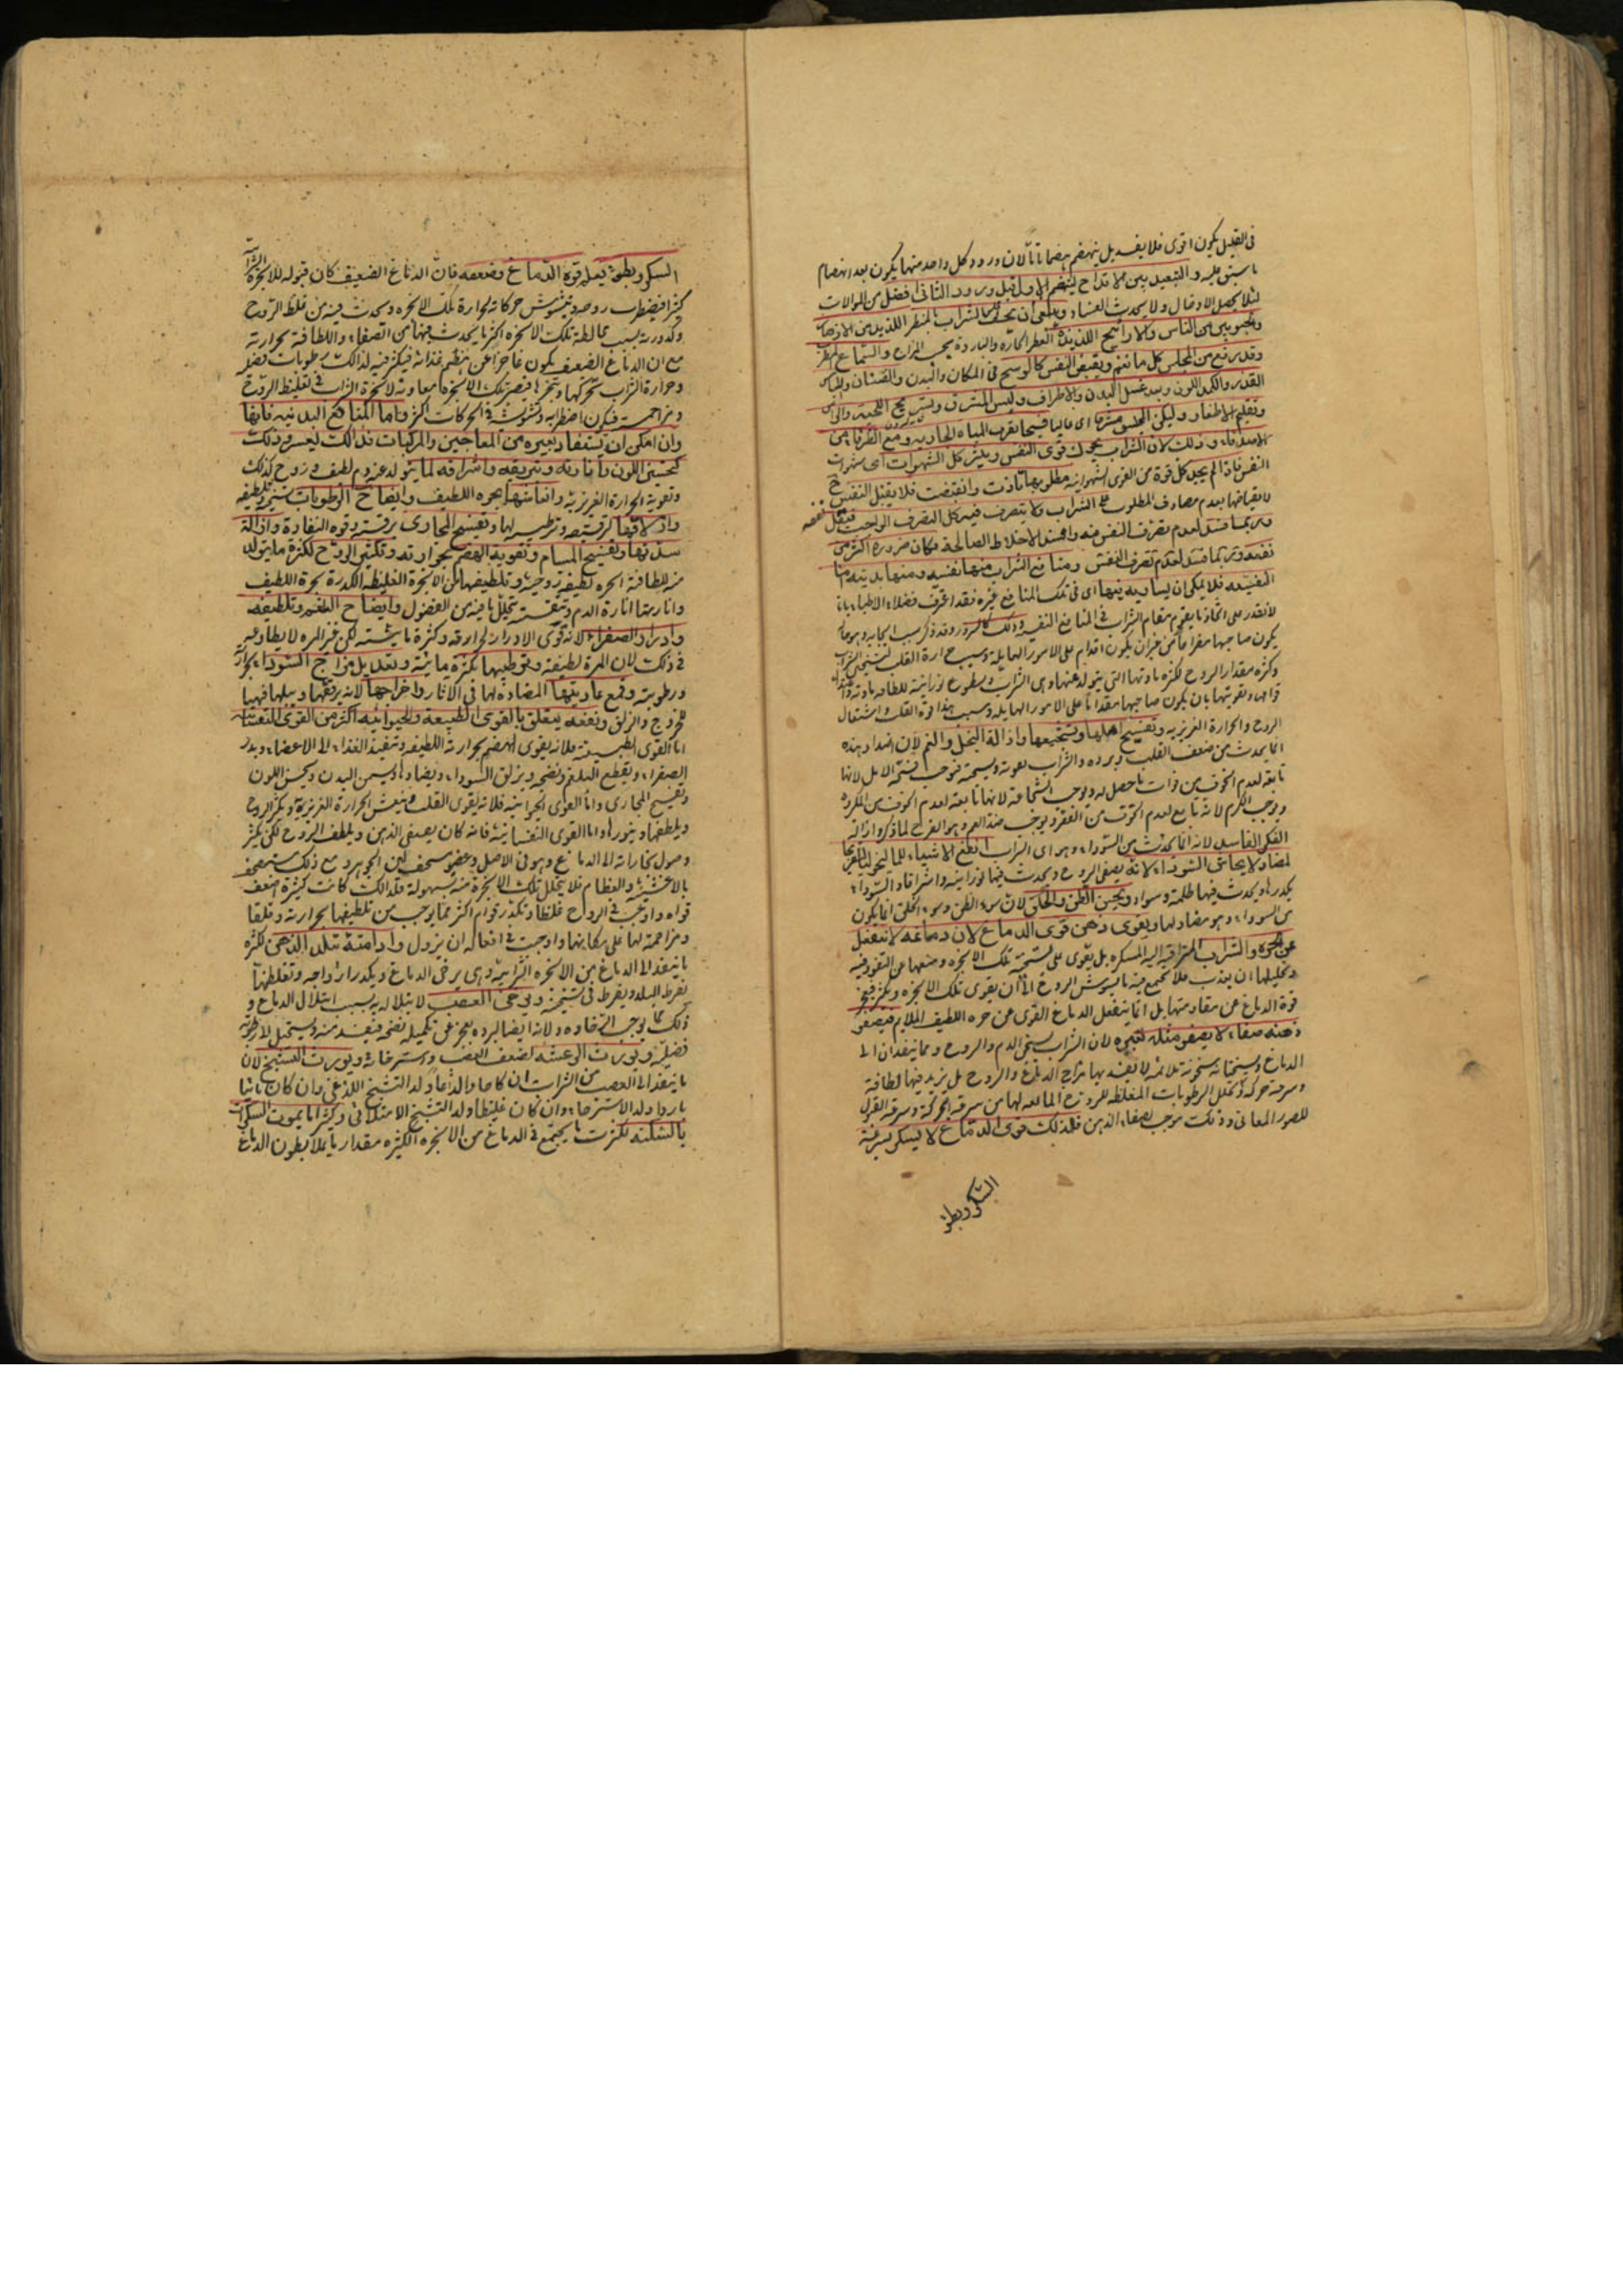 في القليل يكون اقوى فلا يفسد بل ينهضم هضما تاما لان ورود كل واحد منهما يكون بعد انهضام
ما سبق عليه والتبعيد بين الاقداح لينهضم الاول قبل ورود الثانى افضل من الموالات
لئلا يحصل الادخال ولا يحدث الفساد
ومحبوبين من الناس والاراييح اللذيذة العطر الحارة والباردة بحسب المزاج والسماع المطرب
وقد رفع من المجلس كل ما يغم ويقبض النفس كالوسخ فى المكان والبدن والقسان واللباس
القذر والكمد اللون وبعد غسل البدن والاطراف ولبس المشرق وتسريح اللحية والراس
وتقليم الاظفار وليكن المجلس مشرفا اى عاليا فسيحا بقرب المياه الجارية ومع الظرفاء من
الاصدقاء وذلك لان الشراب يحرك قوى النفس ويثير كل الشهوات اى شهوات
النفس فاذا لم يجد كل قوة من القوى الشهوانية مطلوبها تاذت وانقبضت فلا يقبل النفس
لانقباضها بعدم مصادف المطلوب على الشراب ولا يتصرف فيه كل التصرف الواجب فيقل نفعه
وربما فسد لعدم تصرف النفس فيه وافسد الاخلاط الصالحة فكان ضرره اكثر من
نفعه وربما فسد لعدم تصرف النفس ومنافع الشراب منها نفسية ومنها بدنية اما
النفسية فلا يمكن ان يساويه فيها اى فى تلك المنافع غيره فقد اعترف فضلاء الاطباء بانا
لا نقدر على اتخاذ ما يقوم مقام الشراب فى المنافع النفسية وذلك كالسرور وقد ذكر سبب ايجابه
يكون صاحبها مفراحا من غير ان يكون اقدام على الامور الهايلة وسبب حرارة القلب لتسخين الشراب
وكثرة مقدار الروح لكثرة مادتها التى يتولد عنها وهى الشراب وسطوع نورانيته للطافة مادته
قواها وتقويتها بان يكون صاحبها مقداما على الامور الهايلة وسبب هذا قوة القلب واشتعال
الروح والحرارة الغريزية وتفسيح املها وتشجيعها وازالة البخل والغم لان اضداد هذه
انما يحدث من ضعف القلب وبرده والشراب يقويه ويسخنه فيوجب فسحة الامل لانها
تابعة لعدم الخوف من فوات ما حصل له ويوجب الشجاعة لانها تابعة لعدم الخوف من المكروه
ويوجب الكرم لانه تابع لعدم الخوف من الفقر ويوجب ضد الغم وهو الفرح لما ذكر وازالة
الفكر الفاسد لانه انما يحدث من السوداء وهو اى الشراب انفع الاشياء للماليخوليا
لمضادته لا يحاشى السوداء لانه يصفى الروح ويحدث فيها نورانية واشراقا والسوداء
يكدرها ويحدث فيها ظلمة وسواد ويحسن الظن والخلق لان سوء الظن وسوء الخلق انما يكون
من السوداء وهو مضاد لها ويقوى ذهن قوى الدماغ لان دماغه لا ينفعل
عن ابخرة الشراب المتراقية اليه المسكرة بل يقوى على تسخنه تلك الابخرة ومنعها عن النفوذ فيه
وتحليلها ان نفذت فلا يجتمع فيه ما يشوش الروح الا ان يقوى تلك الابخرة ويكثر فيعجز
قوة الدماغ عن مقاومتها بل انما ينفعل الدماغ القوى عن حره اللطيف الملايم فيصفو
ذهنه صفاء لا يصفو مثله لغيره لان الشراب يسخن الدم والروح وهما ينفذان الى
الدماغ ويسخنانه سخونة ملائمة لا يفسد بها مزاج الدماغ والروح بل يزيد فيها لطافة
وسرعة حركة ويحلل الرطوبات المغلظة للروح المانعة لها من سرعة الحركة وسرعة القبول
للصور المعانى وذلك موجب لصفاء الذهن فلذلك قوى الدماغ لا يسكر بسرعة
السكر وبطؤ
السكر وبطؤه تبع لقوة الدماغ وضعفه فان الدماغ الضعيف كان قبوله للابخرة الشرابية
كثيرا فيضطرب روحه ويتشوش حركاته لحرارة تلك الابخرة ويحدث فيه من غلظ الروح
وكدورته بسبب مخالطة تلك الابخرة اكثر ما يحدث فيها من الصفاء واللطافة بحرارته
مع ان الدماغ الضعيف يكون عاجزا عن هضم غذائه فيكثر فيه لذلك رطوبات فضلية
وحرارة الشراب تحركها وتبخرها فيصير تلك الابخرة معاونة لابخرة الشراب فى تغليظ الروح
ومزاحمته فيكون اضطرابه وتشوشه فى الحركات اكثر واما المنافع البدنية فانها
وان امكن ان يستفاد بغيره من المعاجين والمركبات فذلك بعسر وذلك
كتحسين اللون وانارته وتبريقه واشراقه لما يتولد عنه دم لطيف وروح كذلك
وتقوية الحرارة الغريزية وانعاشها بحره اللطيف وانضاج الرطوبات بتسخينه وتلطيفه
وازلاقها لترقيقه وترطيبه لها وتفتيح المجارى برقته وقوة النفاذة وازالة
سددها وتفتيح المسام وتقوية الهضم بحرارته وتكثير الروح لكثرة ما يتولد
منه للطافة ابخرة لطيفة روحية وتلطيفها من الابخرة الغليظة الكدرة بحره اللطيف
وانارتها انارة الدم وتنقيته بتحلل ما فيه من الفضول وانضاج البلغم وتلطيفه
وادرار الصفراء لانه قوى الادرار لحرارته وكثرة مائيته لكن غير المرة لا يطاوعه
فى ذلك لان المرة لطيفة وترطيبها بكثرة مائيته وتعديل مزاج السوداء بحرارته
ورطوبته وقمع عاديتها المضادة لها فى الاثار واخراجها لانه يرققها ويبلها فيهيها
للخروج والزلق ونفعه يتعلق بالقوى الطبيعية والحيوانية اكثر من القوى النفسانية
اما القوى الطبيعية فلانه يقوى الهضم بحرارته اللطيفة وتنفيذ الغذاء الى الاعضاء ويدر
الصفراء ويقطع البلغم وينضجه ويزلق السوداء ويضادها ويسمن البدن ويحسن اللون
وتفتيح المجارى واما القوى الحيوانية فلانه يقوى القلب وينعش الحرارة الغريزية ويكثر الروح
ويلطفها وينورها واما القوى النفسانية فانه كان يصفى الذهن ويلطف الروح لكن يكثر
وصول بخاراته الى الدماغ وهو فى الاصل وعضو سخيف لين الجوهر ومع ذلك مستحصف
بالاغشية والعظام فلا يتحلل تلك الابخرة منه بسهولة فلذلك كانت كثيرة اضعف
قواه واوجب فى الروح غلظا وتكدر قوام اكثر مما يوجب من تلطيفها بحرارته وقلقا
ومزاحمة لها على مكانها واوجبت فى افعاله ان يزول وادامته تبلد الذهن لكثرة
ما ينفذ الى الدماغ من الابخرة الشرابية وهى يرخى الدماغ ويكدر ارواحه وتغلظها
لفرط البلد ويفرط فى تسخينه ويرخى العصب لابتلاله به بسبب ابتلال الدماغ و
ذلك مما يوجب الرخاوة ولانه ايضا لبرده يعجز عن تكميل نضجه فيفسد منه ويستحيل لا رطوبة
فضلية ويورث الرعشة لضعف العصب واسترخائه ويورث التشنج لان
ما ينفذ الى العصب من الشراب ان كان حادا لذاعا ولد التشنج اللذعى وان كان مائيا
باردا ولد الاسترخاء وان كان غليظا ولد التشنج الامتلائى وكثيرا ما يموت السكران
بالسكتة لكثرة ما يجتمع فى الدماغ من الابخرة الكثيرة مقدار ما يملأ بطون الدماغ